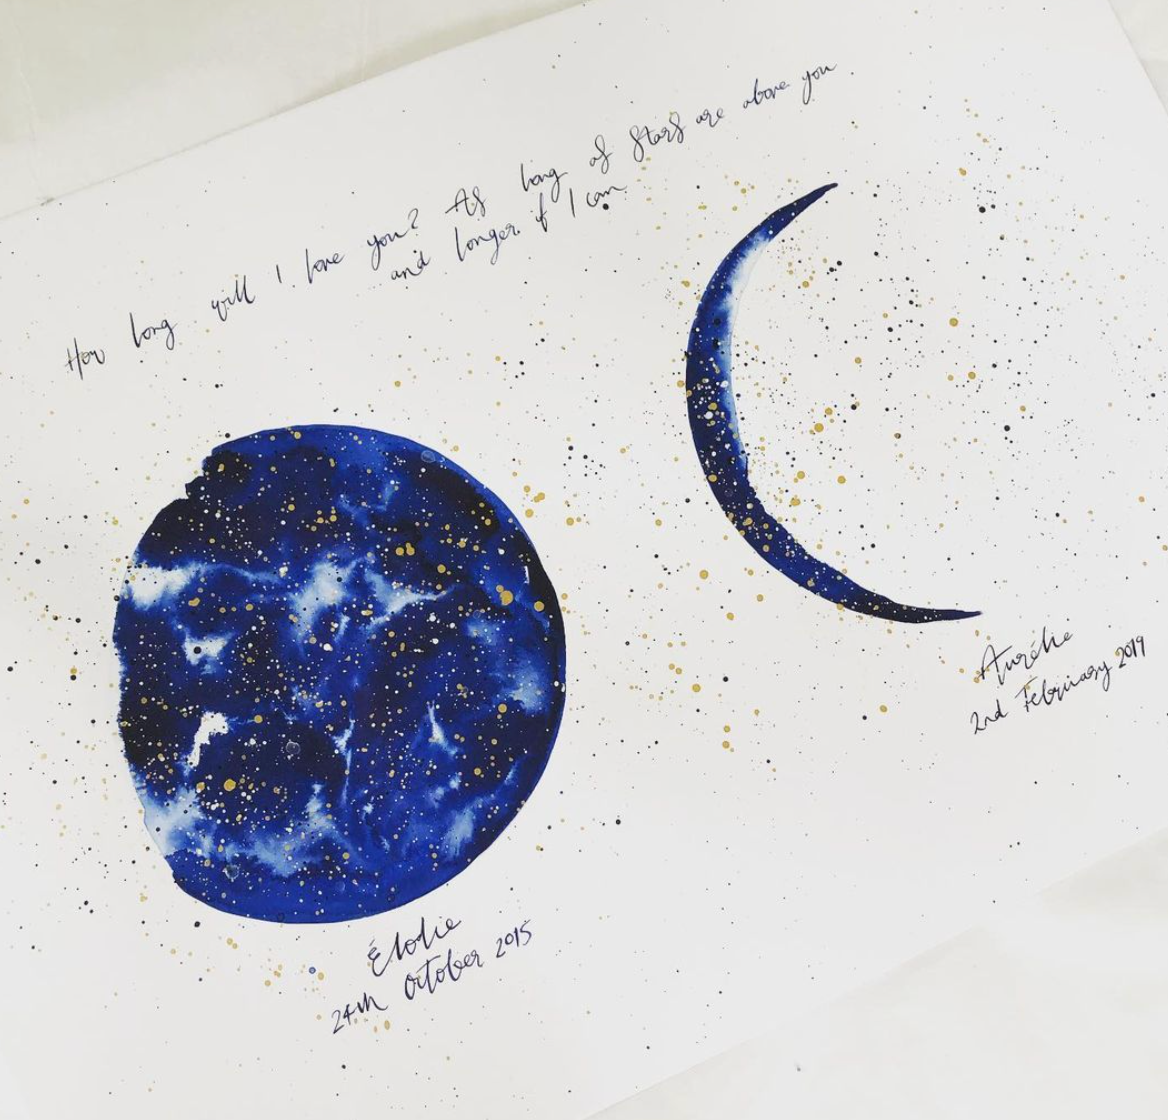 How long will I love you? As long as stars are above you
and longer if I can
Élodie
24th October 2015
Aurélie
2nd February 2019